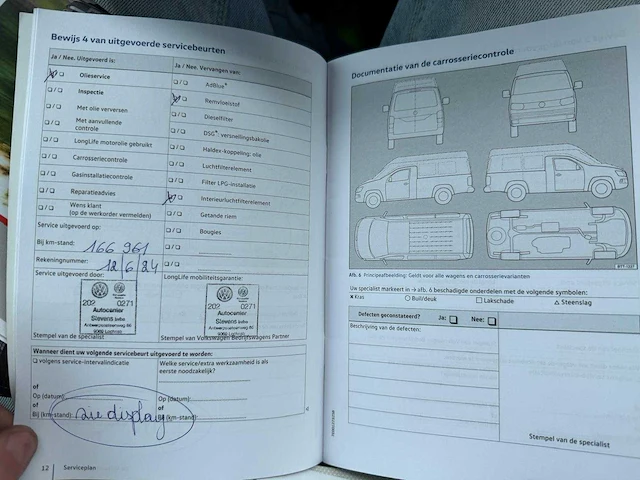 Bewijs 4 van uitgevoerde servicebeurten
Ja / Nee. Uitgevoerd is:
Olieservice
Inspectie
Met olie verversen
Met aanvullende
controle
LongLife motorolie gebruikt
Carrosseriecontrole
Gasinstallatiecontrole
Reparatieadvies
Wens klant
(op de werkorder vermelden)
Ja / Nee. Vervangen van:
AdBlue®
Remvloeistof
Dieselfilter
DSG®: versnellingsbakolie
Haldex-koppeling: olie
Luchtfilterelement
Filter LPG-installatie
Interieurluchtfilterelement
Getande riem
Bougies
Service uitgevoerd op:
Bij km-stand: 166 961
Rekeningnummer: 12/6/24
Service uitgevoerd door:
202 0271
Autocenter
Sievens
Stempel van de specialist
LongLife mobiliteitsgarantie:
202 0271
Autocenter
Sievens
Stempel van Volkswagen Bedrijfswagens Partner
Wanneer dient uw volgende servicebeurt uitgevoerd te worden:
volgens service-intervalindicatie
of
Op (datum):
of
Bij (km-stand):
Welke service/extra werkzaamheid is als
eerste noodzakelijk?
Op (datum):
of
Bij (km-stand):
zie display
12 Serviceplan
Documentatie van de carrosseriecontrole
Afb. 6 Principeafbeelding: Geldt voor alle wagens en carrosserievarianten
Uw specialist markeert in → afb. 6 beschadigde onderdelen met de volgende symbolen:
× Kras ○ Buil/deuk □ Lakschade △ Steenslag
Defecten geconstateerd? Ja: Nee:
Beschrijving van de defecten:
Stempel van de specialist